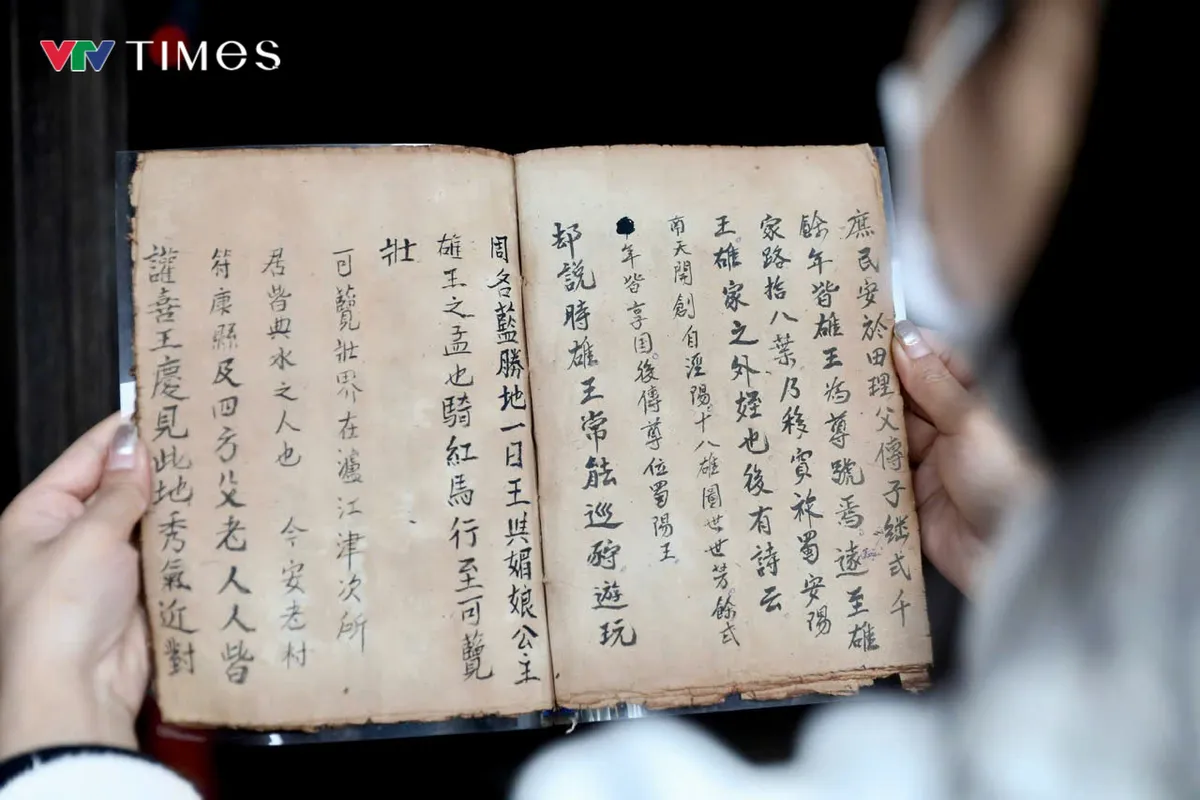 VTV TIMES
庶民安於田理父傳子継弍千
餘年皆雄王為尊號焉遠至雄
家路拾八葉乃移賓祚蜀安陽
王。雄家之外姪也後有詩云
南天開創自涇陽。十八雄圖世世芳。餘弍
年皆享国。後傳尊位蜀陽王。
却說時雄王常能巡狩遊玩
周名藍勝地一日王與媚娘公主
雄王之孟也騎紅馬行至可覽
壯
可覽壯界在瀘江津次所
居皆典水之人也 今安老村
符康縣及四方父老人人皆
讙喜王慶見此地秀氣近對